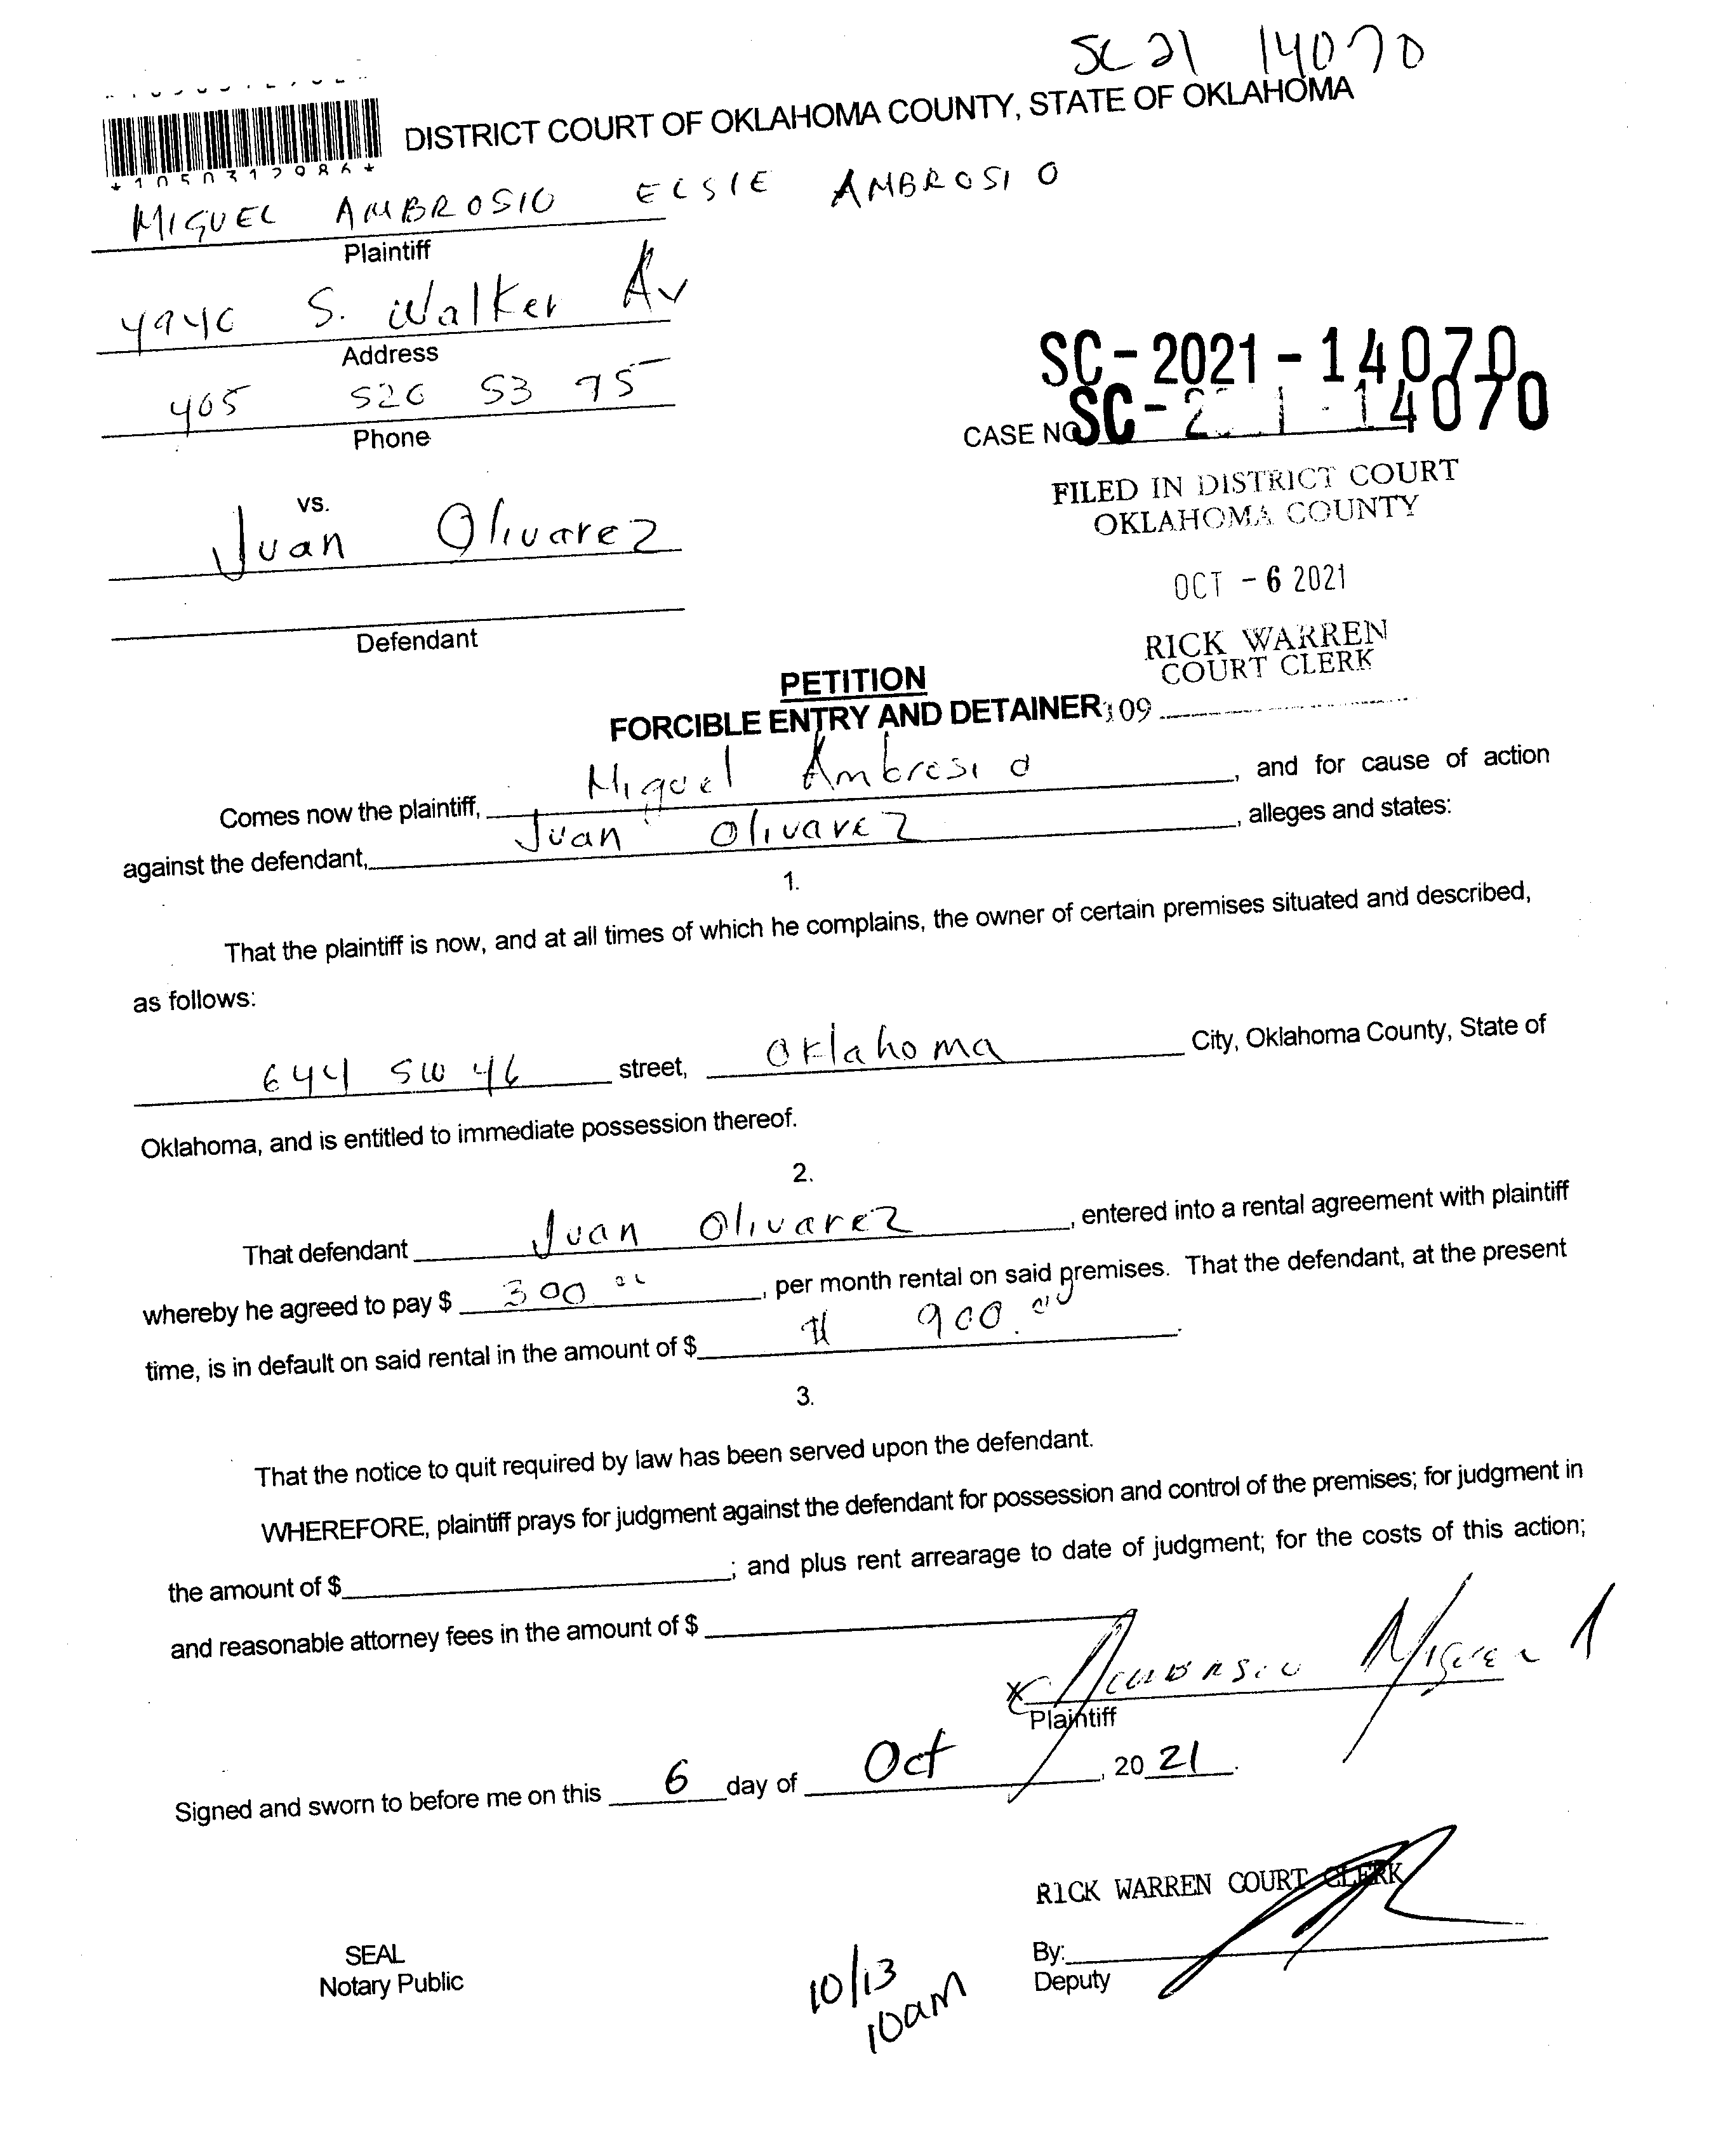 SC 21 14070
DISTRICT COURT OF OKLAHOMA COUNTY, STATE OF OKLAHOMA
MIGUEL AMBROSIO ELSIE AMBROSIO
Plaintiff
S. Walker Av
Address
405 526 53 75
Phone
SC-2021-14070
CASE NO. SC-2021-14070
vs.
Juan Olivarez
Defendant
FILED IN DISTRICT COURT
OKLAHOMA COUNTY
OCT - 6 2021
RICK WARREN
COURT CLERK
PETITION
FORCIBLE ENTRY AND DETAINER
109
Comes now the plaintiff, Miguel Ambrosio, and for cause of action
against the defendant, Juan Olivarez, alleges and states:
1.
That the plaintiff is now, and at all times of which he complains, the owner of certain premises situated and described,
as follows:
644 SW 46 street, Oklahoma City, Oklahoma County, State of
Oklahoma, and is entitled to immediate possession thereof.
2.
That defendant Juan Olivarez, entered into a rental agreement with plaintiff
whereby he agreed to pay $ 300 00, per month rental on said premises. That the defendant, at the present
time, is in default on said rental in the amount of $ 900.00.
3.
That the notice to quit required by law has been served upon the defendant.
WHEREFORE, plaintiff prays for judgment against the defendant for possession and control of the premises; for judgment in
the amount of $ ; and plus rent arrearage to date of judgment; for the costs of this action;
and reasonable attorney fees in the amount of $
x Ambrosio Miguel A
Plaintiff
Signed and sworn to before me on this 6 day of Oct, 20 21.
RICK WARREN COURT CLERK
SEAL
Notary Public
By:
Deputy
10/13
10am